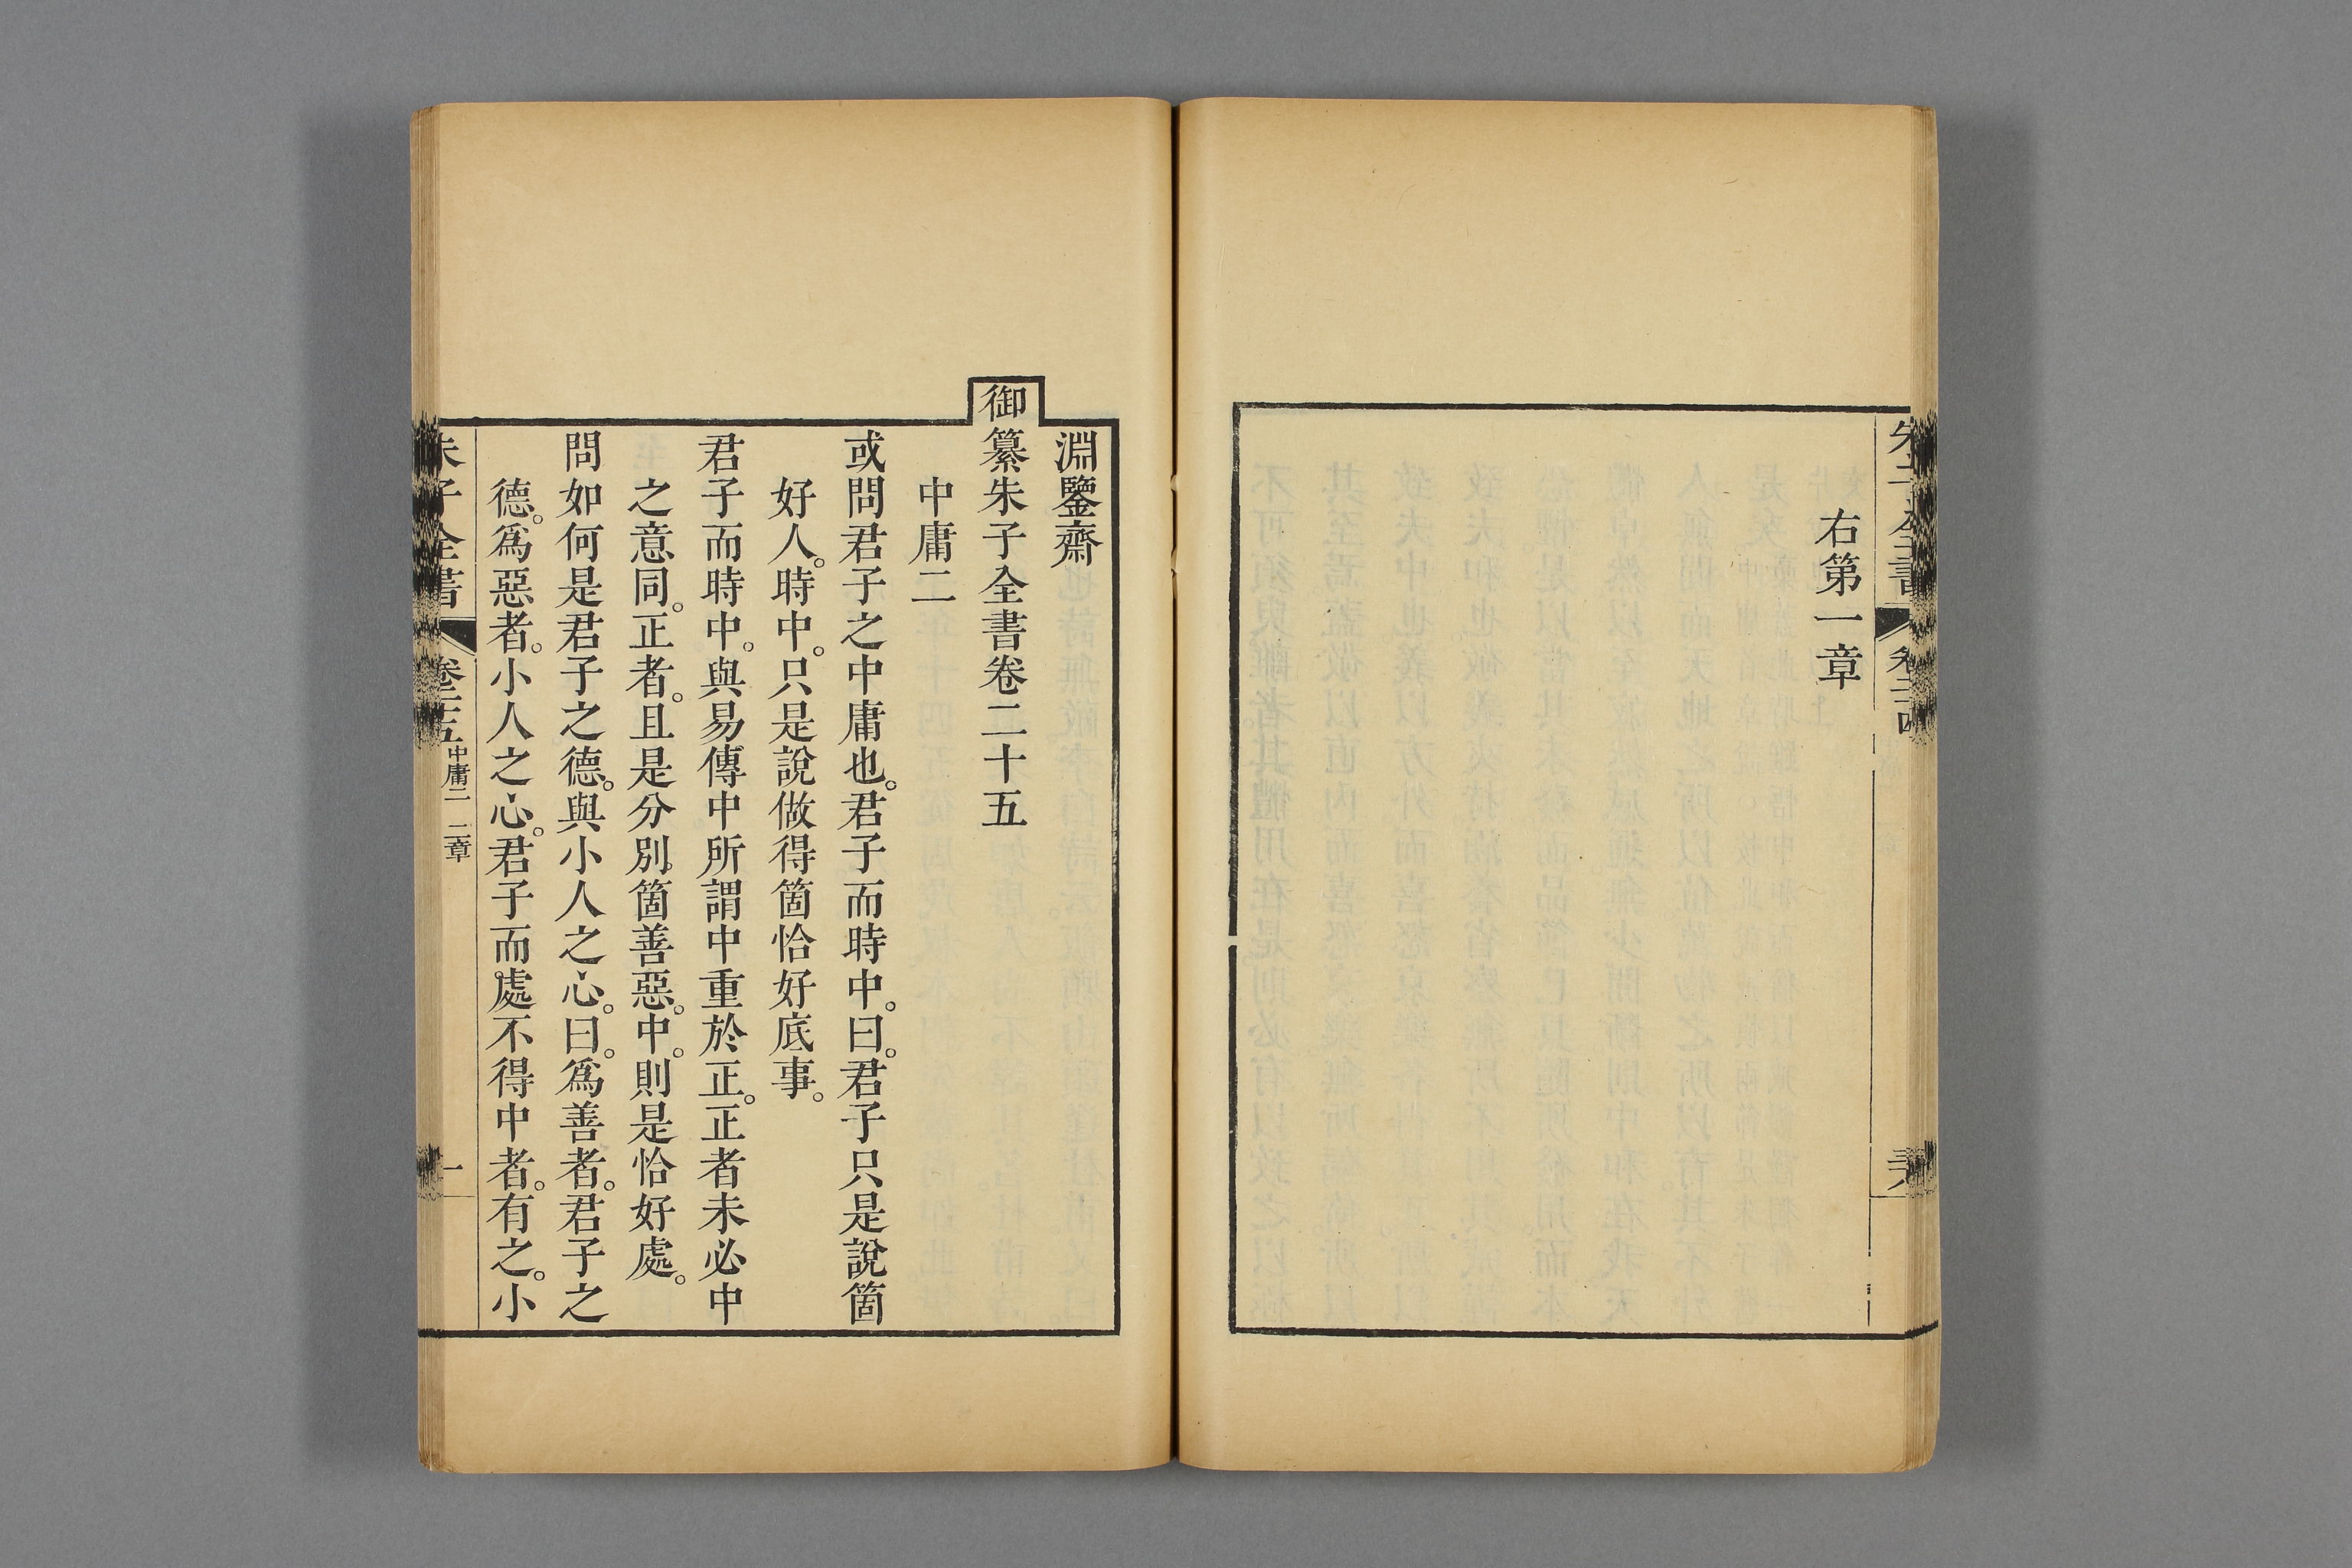 右第一章
朱子全書 卷二十四 三六
淵鑒齋
御纂朱子全書卷二十五
中庸二
或問君子之中庸也。君子而時中。曰。君子只是說箇
好人。時中。只是說做得箇恰好底事。
君子而時中。與易傳中所謂中重於正。正者未必中
之意同。正者。且是分別箇善惡。中。則是恰好處。
問如何是君子之德。與小人之心。曰。爲善者。君子之
德。爲惡者。小人之心。君子而處不得中者。有之。小
朱子全書 卷二十五 中庸二 二章 一